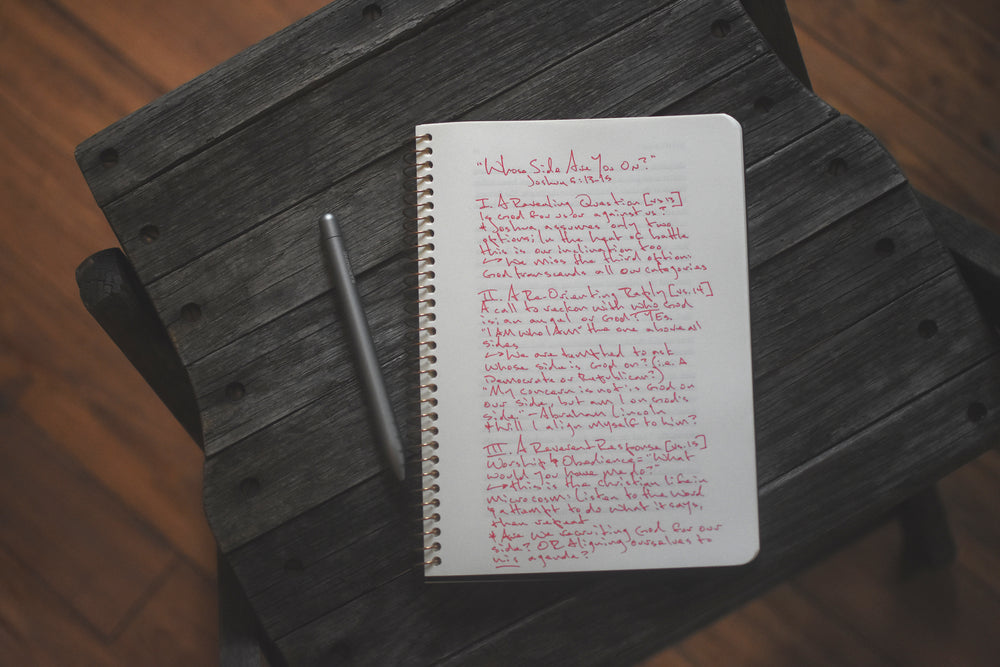 "Whose Side Are You On?"
Joshua 5:13-15
I. A Revealing Question [vs.13]
Is God for us or against us?
* Joshua assumes only two
options; In the heat of battle
this is our inclination too
↳ We miss the third option:
God transcends all our categories
II. A Re-Orienting Reply [vs.14]
A call to reckon with who God
is; an angel or God? YES.
"I AM who I AM" the one above all
sides
↳ We are tempted to ask
whose side is God on? (i.e. A
Democrat or Republican?)
"My concern is not is God on
our side, but am I on God's
side." - Abraham Lincoln
* Will I align myself to Him?
III. A Reverent Response [vs.15]
Worship & Obedience = "What
would You have me do?"
↳ this is the christian life in
microcosm: Listen to the word
& attempt to do what it says,
then repeat
* Are we recruiting God for our
side? OR Aligning ourselves to
His agenda?